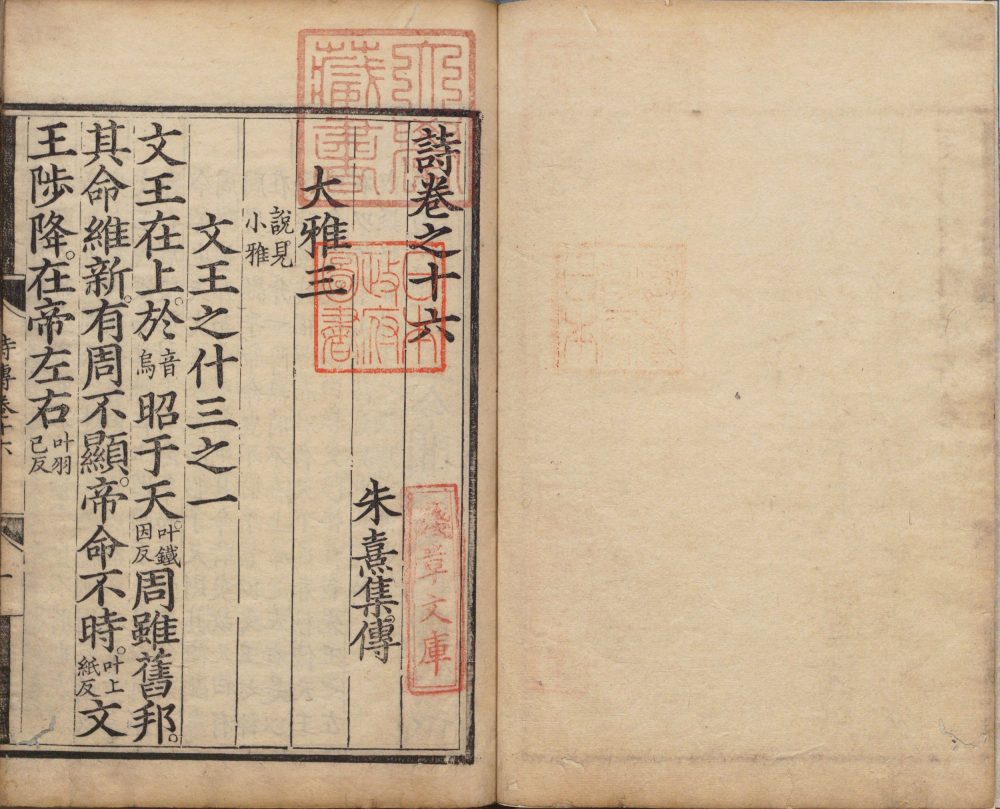 詩卷之十六
朱熹集傳
大雅三
說見
小雅
文王之什三之一
文王在上。於音烏昭于天。叶鐵因反周雖舊邦。
其命維新。有周不顯。帝命不時。叶上紙反文
王陟降。在帝左右叶羽已反
詩傳卷十六
一
日本
政府
圖書
淺草文庫
藏書